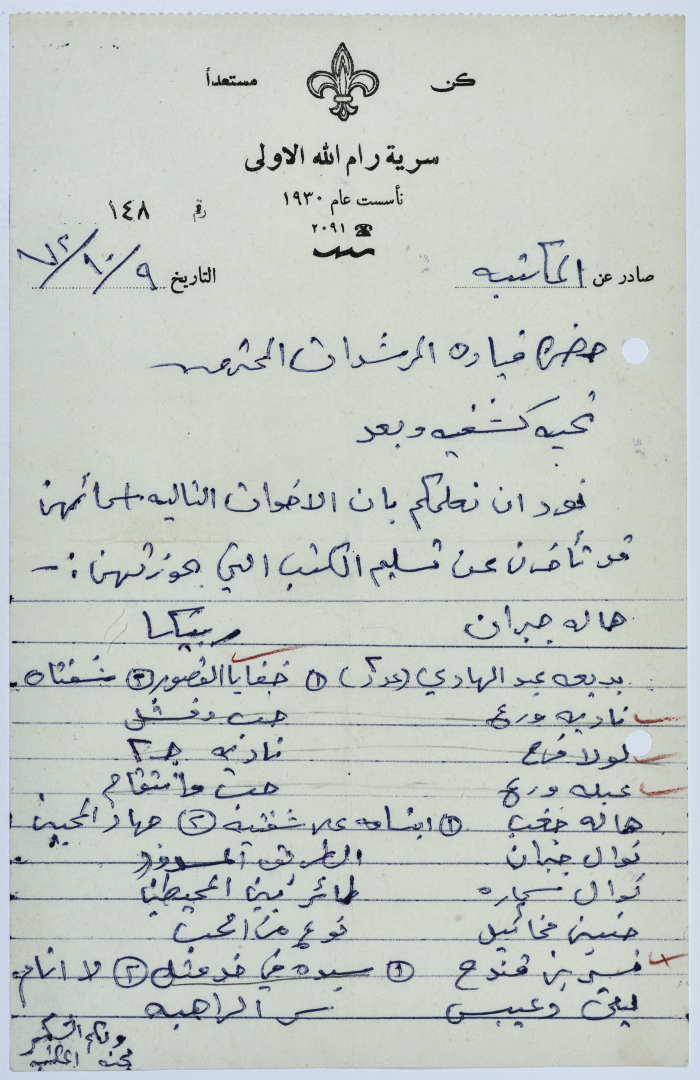 كن مستعداً
سرية رام الله الاولى
تأسست عام ١٩٣٠
رقم ١٤٨
☎ ٢٠٩١
صادر عن المكتبه
التاريخ ٩/١٠/٧٢
حضرة قياده المرشدات المحترمين
تحيه كشفيه وبعد
نود ان نعلمكم بان الاخوات التاليه اسمائهن
قد تأخرن عن تسليم الكتب التي بحوزتهن :-
هاله جبران ربيكا
بديعه عبد الهادي (عدد ٢) ① خفايا القصور ② شفتاه
ناديه ورع حب وفشل
لولا فرح ناديه ج٢
عبله ورع حب وانتقام
هاله خغب ① ابتسامه على شفتيه ② جهاد المحبين
نوال جبران الطريق المسدود
نوال سماره طائر بين المحيطين
حنين مخائيل نوع من الحب
نسرين قندح ① سيده في خدمتك ② لا انام
ليلى وعيبس سر الراهبه
ولكم الشكر
لجنة المكتبه